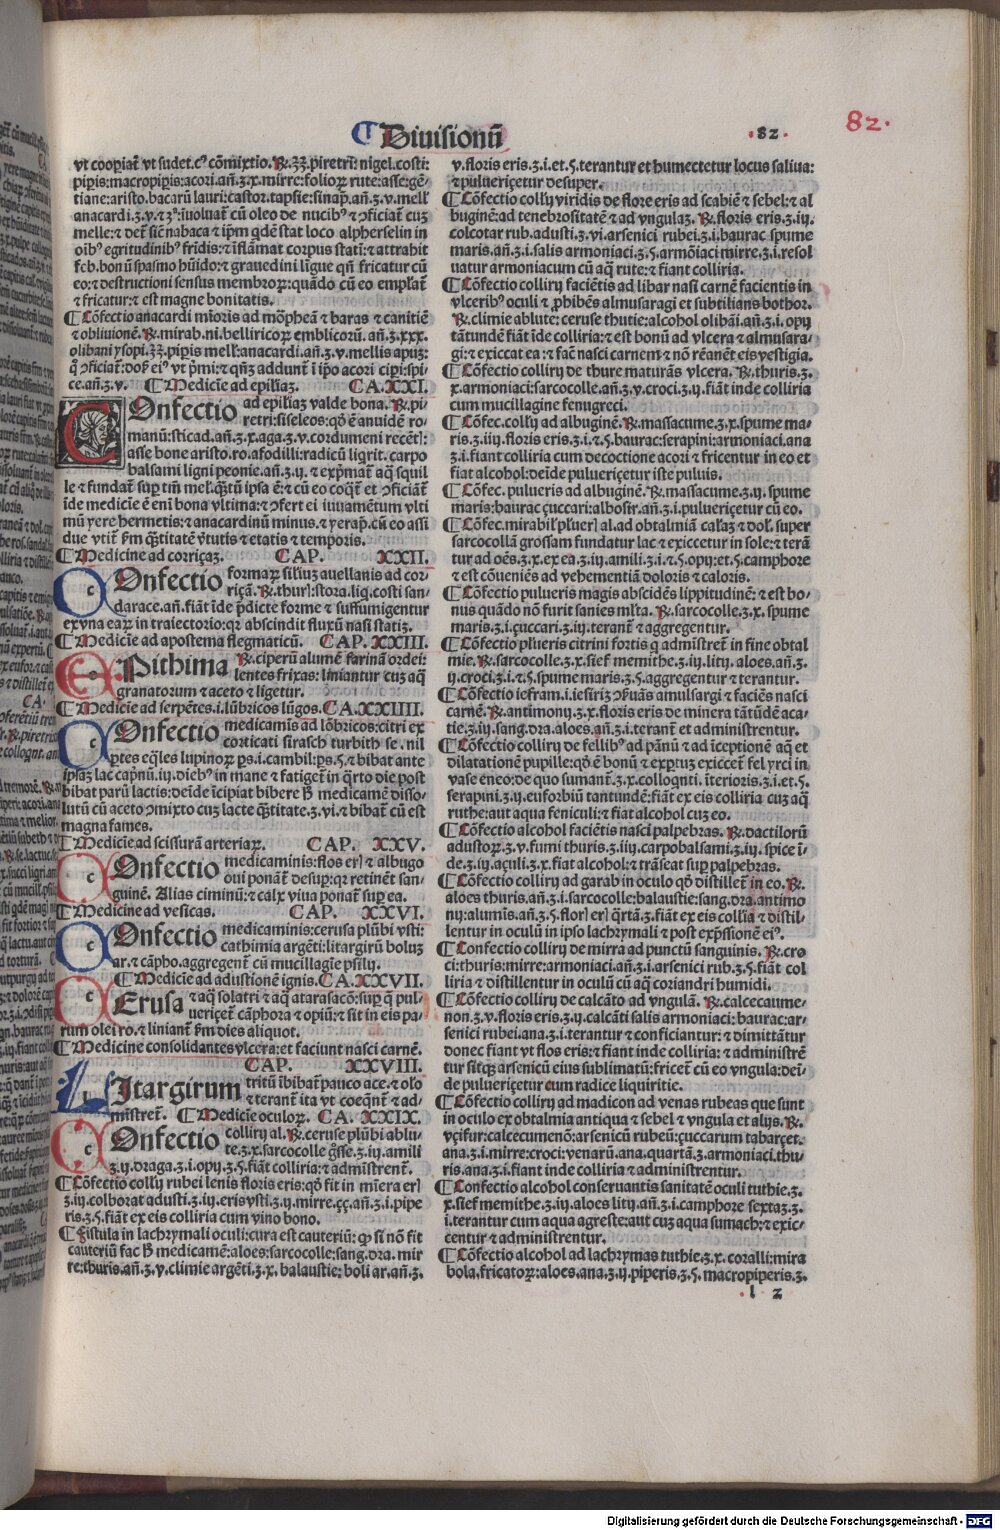 Diuisionū
.82.
82.
vt coopiat̄ vt sudet. cꝰ cōmixtio. ℞.ʒʒ.piretri: nigel.costi:
pipis: macropipis: acori.añ.ʒ.x. mirre: folioꝝ rute: asse: gē
tiane: aristo. bacarū lauri: castor. tapsie: sinap̄. añ.ʒ.v. mell̄
anacardi.ʒ.v.
melle: ⁊ det̄ sicut nabaca ⁊ ip̄m qdē stat loco alpherselin in
oībꝰ egritudinibꝰ fridis: ⁊ īflāmat corpus
eo: ⁊ destructioni sensus membroꝝ: quādo cū eo emplat̄
⁊ fricatur: ⁊ est magne bonitatis.
¶ Cōfectio anacardi mīoris ad mōpheā ⁊ baras ⁊ canitiē
⁊ obliuionē. ℞. mirab. ni. belliricoꝝ emblicorū. añ.ʒ.xxx.
olibani ysopi.ʒʒ. pipis mell̄: anacardi. añ.ʒ.v. mellis apuʒ:
ce. añ.ʒ.v. ¶ Medicīe ad epiliaʒ. CA. XXI.
COnfectio ad epiliaʒ valde bona. ℞. pi-
retri: siseleos: qō ē anuidē ro-
manū: sticad. añ.ʒ.x. aga.ʒ.v. cordumeni recēt̄:
asse bone aristo. ro. afodilli: radicū liqrit. carpo
balsami ligni peonie. añ.ʒ.ij. ⁊ exp̄mat̄ aq̄ squil
le ⁊ fundat̄ suꝑ tm̄ mel. q̄stū ipsa ē: ⁊ cū eo coq̄t̄ et ꝯficiat̄
īde medicīe ē eni bona vltima: ⁊ ꝯfert ei iuuamētum vlti
mū yere hermetis: ⁊ anacardinū minus. ⁊ yerap̄. cū eo assi
due vtit̄ ẜm q̄titatē v̄tutis ⁊ etatis ⁊ temporis.
¶ Medicine ad corriçaʒ. CAP. XXII.
COnfectio formaꝝ siliuʒ auellanis ad cor-
riçā. ℞. thurꝭ: stora. liq. costi san-
darace. añ. fiāt īde p̄dicte forme ⁊ suffumigentur
ex vna earꝝ in traiectorio: qꝛ abscindit fluxū nasi statiʒ.
¶ Medicīe ad apostema flegmaticū. CAP. XXIII.
EPithima ℞. ciperū alumē farinā ordei:
lentes frixas: liniantur cuʒ aq̄
granatorum ⁊ aceto ⁊ ligetur.
¶ Medicīe ad serpētes. i. lūbricos lūgos. CA. XXIIII.
COnfectio medicamīs ad lōbricos: citri ex
corticati sirasch turbith se. nil
ꝑtes eq̄les lupinoꝝ ꝑs. i. cambil: ꝑs.5. ⁊ bibat ante
ipsaʒ lac capn̄ū. iij. diebꝰ in mane ⁊ fatiget̄ in q̄rto die post
bibat parū lactis: deīde īcipiat bibere hͦ medicamē disso-
lutū cū aceto ꝯmixto cuʒ lacte q̄titate.ʒ.vi. ⁊ bibat̄ cū est
magna fames.
¶ Medicīe ad scissurā arteriaꝝ. CAP. XXV.
COnfectio medicaminis: flos erꝭ ⁊ albugo
oui ponāt̄ desuꝑ: qꝛ retinēt san-
guinē. Alias ciminū: ⁊ calx viua ponat̄ suꝑ ea.
¶ Medicine ad vesicas. CAP. XXVI.
COnfectio medicaminis: cerusa plūbi vsti:
cathimia argēti: litargirū boluʒ
ar. ⁊ cāpho. aggregent̄ cū mucillagīe psilij.
¶ Medicīe ad adustionē ignis. CA. XXVII.
CErusa ⁊ aq̄ solatri ⁊ aq̄ atarasacō: suꝑ q̄ pul-
ueriçet̄ cāphora ⁊ opiū: ⁊ sit in eis pa-
rum olei ro. ⁊ liniant̄ ẜm dies aliquot.
¶ Medicine consolidantes vlcera: et faciunt nasci carnē.
CAP. XXVIII.
LItargirum tritū ībibat̄ pauco ace. ⁊ olo
⁊ terant̄ ita vt coeq̄nt̄ ⁊ ad-
mīstret̄. ¶ Medicīe oculoꝝ. CA. XXIX.
COnfectio collirij al. ℞. ceruse plūbi ablu-
te.ʒ.x. sarcocolle gr̄sse.ʒ.iij. amili
ʒ.ij. draga.ʒ.i. opij.ʒ.5. fiāt colliria: ⁊ admīstrent̄.
¶ Cōfectio collij rubei lenis floris eris: qō fit in mīera erꝭ
ʒ.iij. colborat adusti.ʒ.iij. eris vsti.ʒ.ij. mirre. çç. añ.ʒ.i. pipe
ris.ʒ.5. fiāt ex eis colliria cum vino bono.
¶ Fistula in lachrymali oculi: cura est cauteriū: ꝙ si nō fit
cauteriū fac hͦ medicamē: aloes: sarcocolle: sang. dra. mir
re: thuris. añ.ʒ.v. climie argēti.ʒ.x. balaustie: boli ar. añ.ʒ.
v. floris eris.ʒ.i. et.5. terantur et humectetur locus saliua:
⁊ pulueriçetur desuper.
¶ Cōfectio collij viridis de flore eris ad scabiē ⁊ sebel: ⁊ al
buginē: ad tenebrositatē ⁊ ad vngulaʒ. ℞. floris eris.ʒ.iij.
colcotar rub. adusti.ʒ.vi. arsenici rubei.ʒ.i. baurac spume
maris. añ.ʒ.i. salis armoniaci.ʒ.5. armōiaci mirre.ʒ.i. resol
uatur armoniacum cū aq̄ rute: ⁊ fiant colliria.
¶ Cōfectio collirij faciētis ad libar nasi carnē facientis in
vlceribꝰ oculi ⁊ ꝓhibēs almusaragi et subtilians bothor.
℞. climie ablute: ceruse thutie: alcohol olibāi. añ.ʒ.i. opij
tātundē fiāt īde colliria: ⁊ est bonū ad vlcera ⁊ almusara-
gi: ⁊ exiccat ea: ⁊ fac̄ nasci carnem ⁊ nō remanēt eis vestigia.
¶ Cōfectio collirij de thure maturās vlcera. ℞. thuris.ʒ.
x. armoniaci: sarcocolle. añ.ʒ.v. croci.ʒ.ij. fiāt inde colliria
cum mucillagine fenugreci.
¶ Cōfec. collij ad albuginē. ℞. massacume.ʒ.x. spume ma-
ris.ʒ.iiij. floris eris.ʒ.i. ⁊.5. baurac: serapini: armoniaci. ana
ʒ.i. fiant colliria cum decoctione acori ⁊ fricentur in eo et
fiat alcohol: deīde pulueriçetur iste puluis.
¶ Cōfec. pulueris ad albuginē. ℞. massacume.ʒ.ij. spume
maris: baurac çuccari: albosir. añ.ʒ.i. pulueriçetur cū eo.
¶ Cōfec. mirabil̄ pluerꝭ al. ad obtalmiā calaʒ ⁊ dol. super
sarcocollā grossam fundatur lac ⁊ exiccetur in sole: ⁊ terat̄
tur ad oēs.ʒ.x. ex ea.ʒ.iij. amili.ʒ.i. ⁊.5. opij: et.5. camphore
⁊ est cōueniēs ad vehementiā doloris ⁊ caloris.
¶ Cōfectio pulueris magis abscidēs lippitudinē: ⁊ est bo-
nus quādo nō furit sanies ml̄ta. ℞. sarcocolle.ʒ.x. spume
maris.ʒ.i. çuccari.ʒ.iij. terant̄ ⁊ aggregentur.
¶ Cōfectio plueris citrini fortis q̄ admīstret̄ in fine obtal
mie. ℞. sarcocolle.ʒ.x. sief memithe.ʒ.iij. litij. aloes. añ.ʒ.
ij. croci.ʒ.i. ⁊.5. spume maris.ʒ.5. aggregentur ⁊ terantur.
carnē. ℞. antimonij.ʒ.x. floris eris de minera tātūdē aca-
tie.ʒ.iij. sang. dra. aloes. añ.ʒ.i. terant̄ et administrentur.
¶ Cōfectio collirij de fellibꝰ ad pānū ⁊ ad īceptionē aq̄ et
dilatationē pupille: qō ē bonū ⁊ exp̄tuʒ exiccet̄ fel yrci in
vase eneo: de quo sumant̄.ʒ.x. colloqn̄ti. īterioris.ʒ.i. et.5.
serapini.ʒ.ij. euforbiū tantundē: fiāt ex eis colliria cuʒ aq̄
ruthe: aut aqua feniculi: ⁊ fiat alcohol cuʒ eo.
¶ Cōfectio alcohol faciētis nasci palpebras. ℞. dactilorū
adustoꝝ.ʒ.v. fumi thuris.ʒ.iiij. carpobalsami.ʒ.iij. spice ī-
de.ʒ.iij. açuli.ʒ.x. fiat alcohol: ⁊ trāseat suꝑ palpebras.
¶ Cōfectio collirij ad garab in oculo qō distillet̄ in eo. ℞.
aloes thuris. añ.ʒ.i. sarcocolle: balaustie: sang. dra. antimo
nij: alumīs. añ.ʒ.5. florꝭ erꝭ q̄rtā.ʒ. fiāt ex eis collia ⁊ distil-
lentur in oculū in ipso lachrymali ⁊ post exp̄ssionē eiꝰ.
¶ Confectio collirij de mirra ad punctū sanguinis. ℞. cro
ci: thuris: mirre: armoniaci. añ.ʒ.i. arsenici rub.ʒ.5. fiāt col
liria ⁊ distillentur in oculū cū aq̄ coriandri humidi.
¶ Cōfectio collirij de calcāto ad vngulā. ℞. calcecaume-
non.ʒ.v. floris eris.ʒ.ij. calcāti salis armoniaci: baurac: ar-
senici rubei. ana.ʒ.i. terantur ⁊ conficiantur: ⁊ dimittātur
donec fiant vt flos eris: ⁊ fiant inde colliria: ⁊ administrē
tur sitqʒ arsenicū eius sublimatū: fricet̄ cū eo vngula: deī-
de pulueriçetur cum radice liquiritie.
¶ Cōfectio collirij ad madicon ad venas rubeas que sunt
in oculo ex obtalmia antiqua ⁊ sebel ⁊ vngula et alijs. ℞.
vçifur: calcecumenō: arsenicū rubeū: çuccarum tabarçet.
ana.ʒ.i. mirre: croci: venarū. ana. quartā.ʒ. armoniaci. thu-
ris. ana.ʒ.i. fiant inde colliria ⁊ administrentur.
¶ Confectio alcohol conseruantis sanitatē oculi tuthie.ʒ.
x. sief memithe.ʒ.iij. aloes litij. añ.ʒ.i. camphore sextaʒ.ʒ.
i. terantur cum aqua agreste: aut cuʒ aqua sumach: ⁊ exic-
centur ⁊ administrentur.
¶ Cōfectio alcohol ad lachrymas tuthie.ʒ.x. coralli: mira
bola. fricatoꝝ: aloes. ana.ʒ.ij. piperis.ʒ.5. macropiperis.ʒ.
.l 2
Digitalisierung gefördert durch die Deutsche Forschungsgemeinschaft - DFG